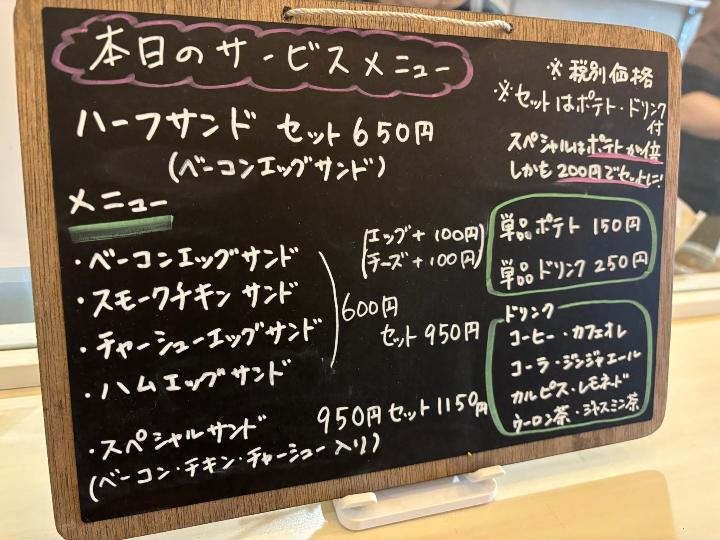 本日のサービスメニュー
ハーフサンド セット650円
(ベーコンエッグサンド)
※ 税別価格
※セットはポテト・ドリンク
付
スペシャルはポテトが倍
しかも 200円でセットに!
メニュー
・ベーコンエッグサンド
・スモークチキン サンド
・チャーシューエッグサンド
・ハムエッグサンド
(エッグ+100円)
(チーズ+100円)
600円
セット 950円
・スペシャルサンド 950円 セット 1150円
(ベーコン・チキン・チャーシュー入り)
単品ポテト 150円
単品ドリンク 250円
ドリンク
コーヒー・カフェオレ
コーラ・ジンジャエール
カルピス・レモネード
ウーロン茶・ジャスミン茶